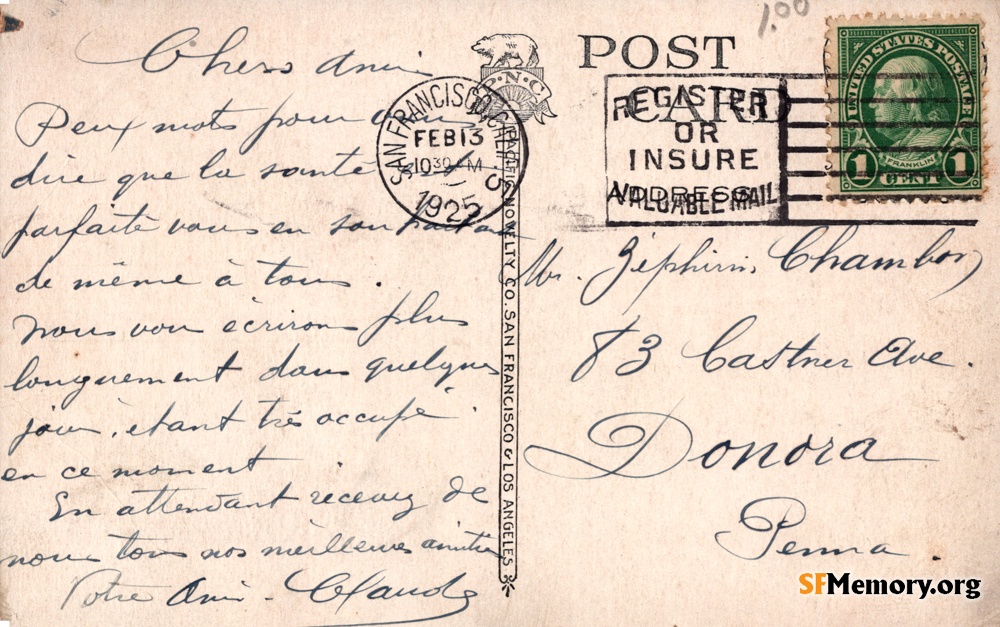 1.00
POST CARD
P.N.C
SAN FRANCISCO, CALIF.
FEB 13
10 30 AM
1925
5
REGISTER
OR
INSURE
VALUABLE MAIL
ADDRESS
UNITED STATES POSTAGE
FRANKLIN
1 CENT 1
PACIFIC NOVELTY CO. SAN FRANCISCO & LOS ANGELES
Chers Amis
Deux mots pour vous
dire que la santé
parfaite vous en souhaitant
de même à tous.
Nous vous écrirons plus
longuement dans quelques
jours, étant très occupé
en ce moment
En attendant recevez de
nous tous nos meilleures amitiés
Votre Ami - Claude
Mr. Zéphirin Chambon
83 Castner Ave.
Donora
Penna.
SFMemory.org